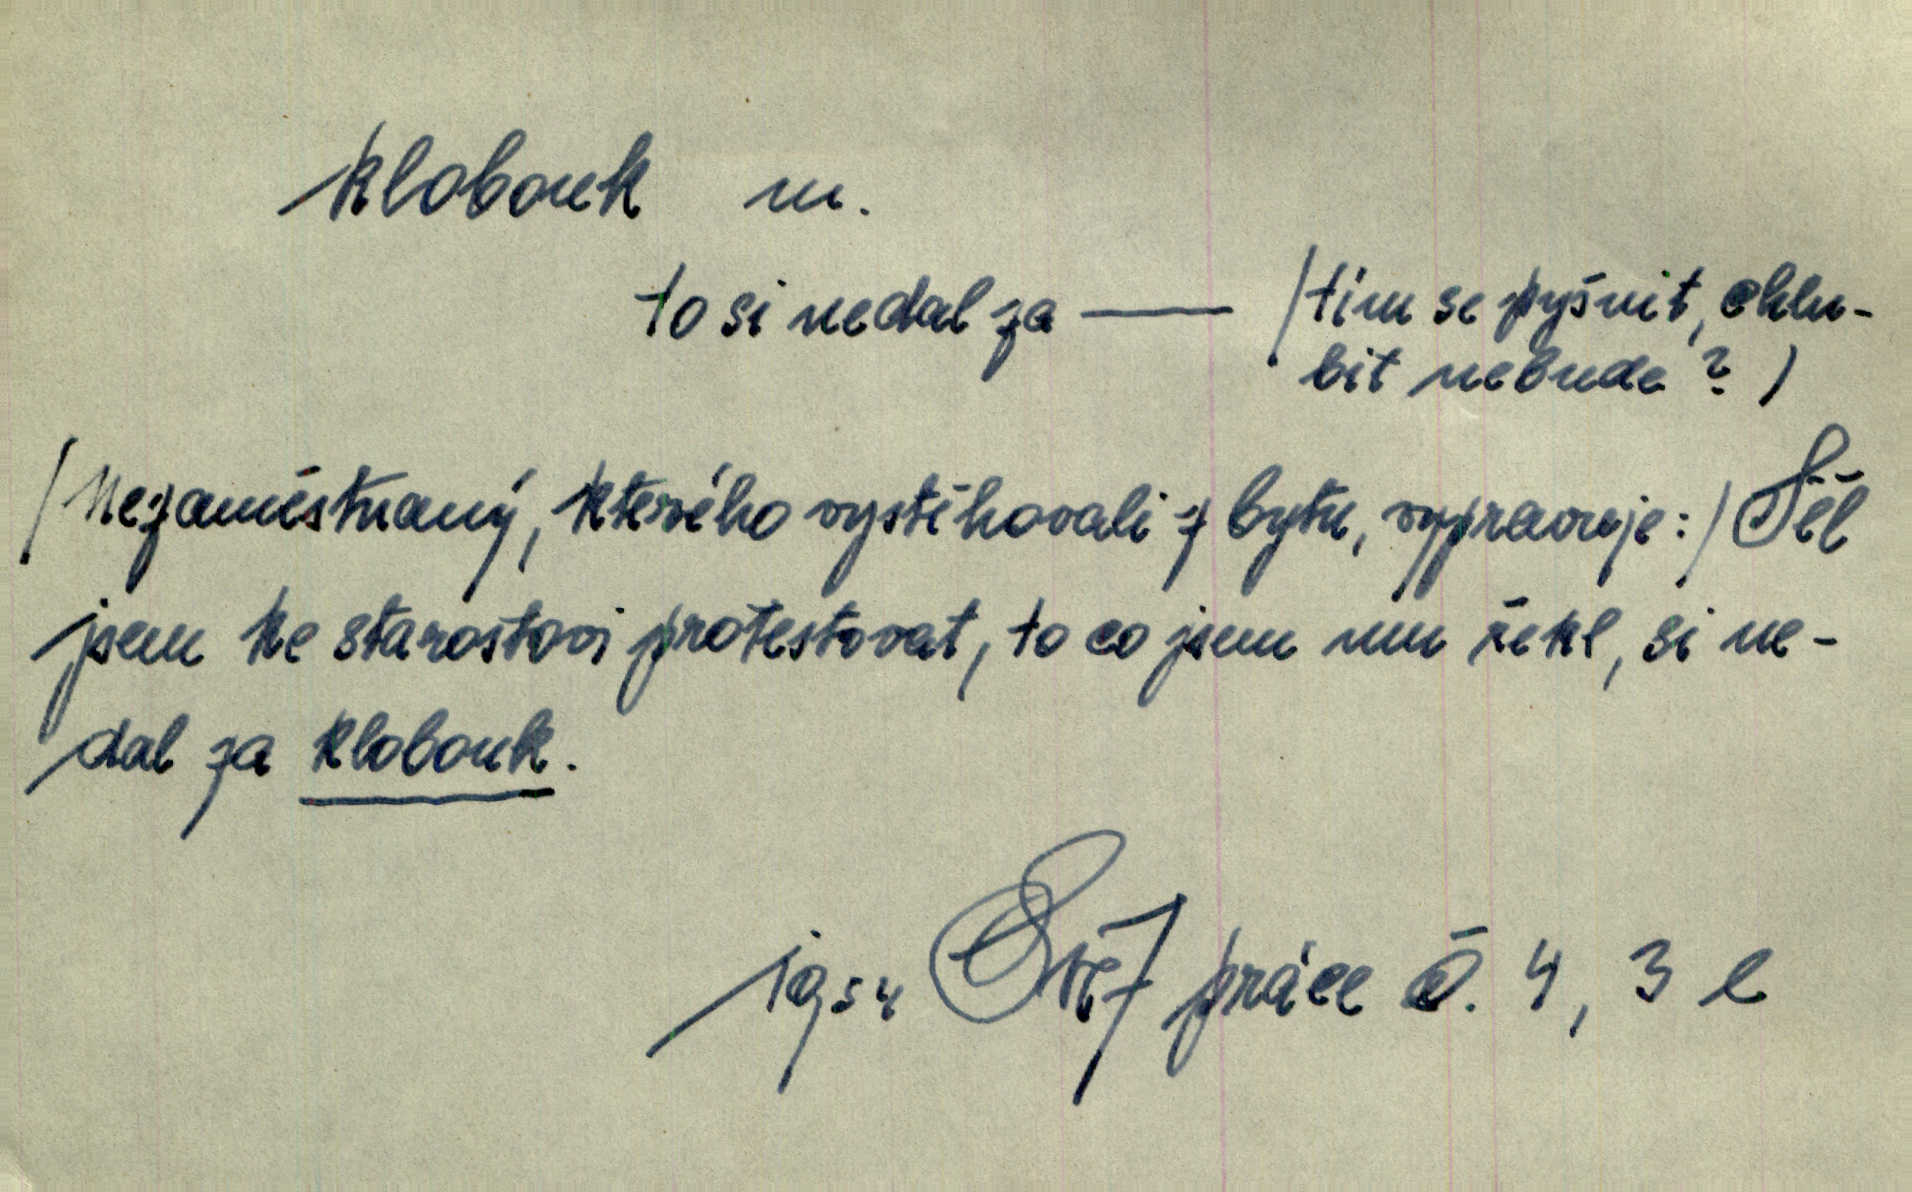 klobouk m.
to si nedal za —— (tím se pyšnit, chlu-
bit nebude?)
(Nezaměstnaný, kterého vystěhovali z bytu, vypravuje:) Šel
jsem ke starostovi protestovat, to co jsem mu řekl, si ne-
dal za klobouk.
1954 Svět práce č. 4, 3 e